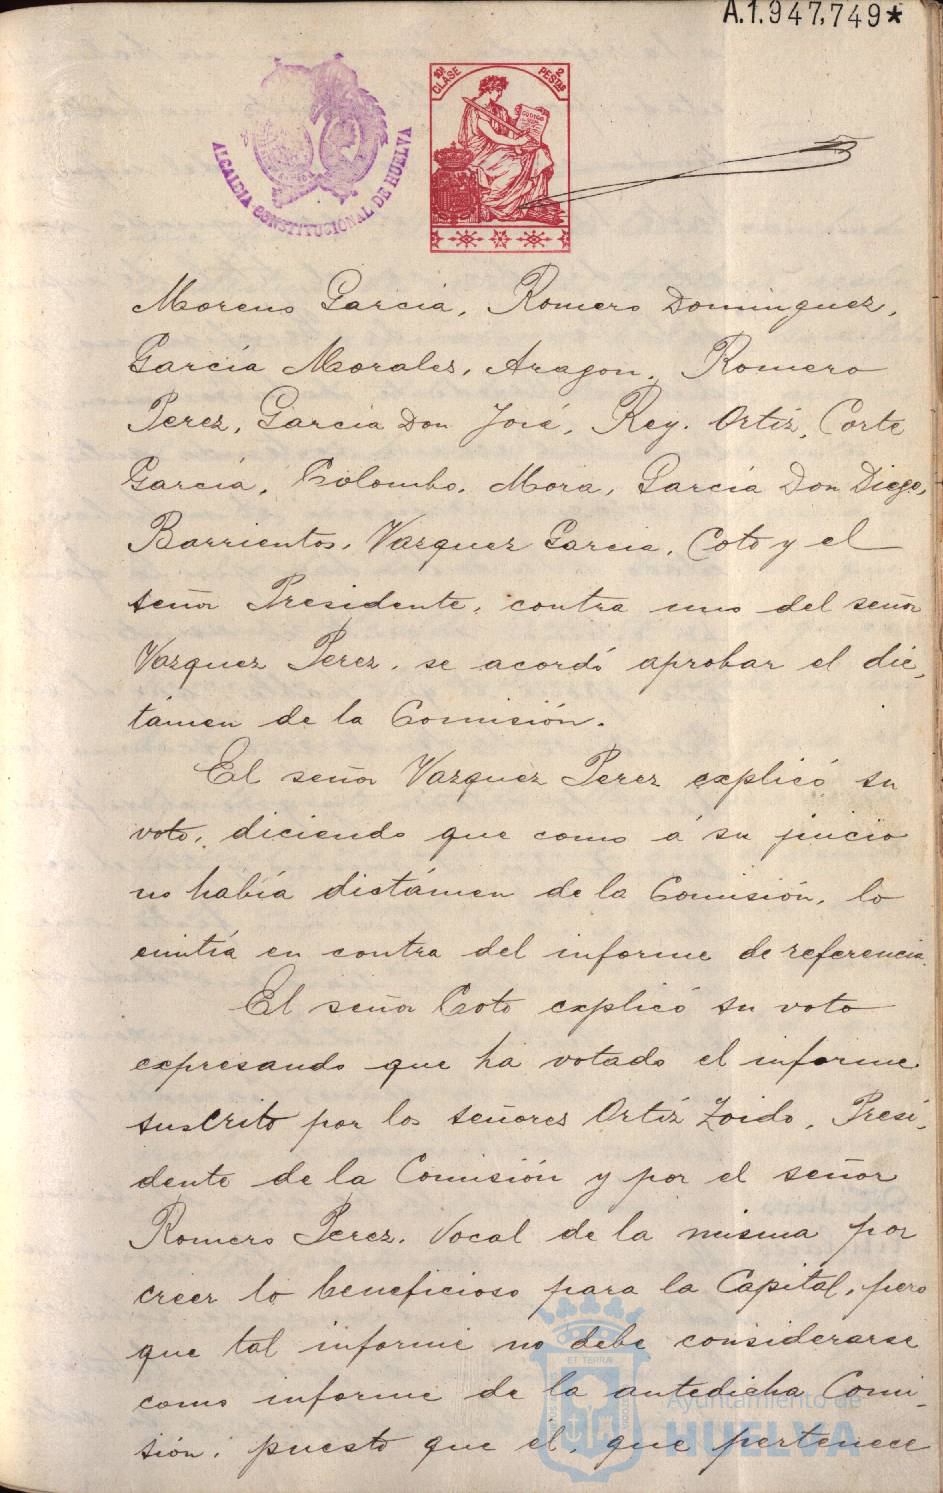 A.1.947,749*
ALCALDIA CONSTITUCIONAL DE HUELVA
10ª CLASE
2 PESTAS
CODIGO
Moreno Garcia, Romero Dominguez,
García Morales, Aragon, Romero
Perez, Garcia Don José, Rey, Ortiz, Corte
García, Colombo, Mora, García Don Diego,
Barrientos, Vazquez Garcia, Coto y el
señor Presidente, contra uno del señor
Vazquez Perez, se acordó aprobar el dic-
támen de la Comisión.
El señor Vazquez Perez explicó su
voto, diciendo que como á su juicio
no había dictámen de la Comisión, lo
emitía en contra del informe de referencia.
El señor Coto explicó su voto
expresando que ha votado el informe
suscrito por los señores Ortiz Zoido, Presi-
dente de la Comisión y por el señor
Romero Perez, Vocal de la misma por
creer lo beneficioso para la Capital, pero
que tal informe no debe considerarse
como informe de la antedicha Comi-
sión, puesto que él, que pertenece
ET TERRA
Ayuntamiento de
HUELVA